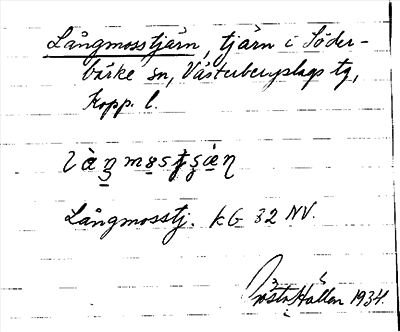 Långmosstjärn, tjärn i Söder-
bärke sn, Västerbergslags tg,
Kopp. l.
Långmosstj. KG 32 NV.
Gösta Hallen 1934.